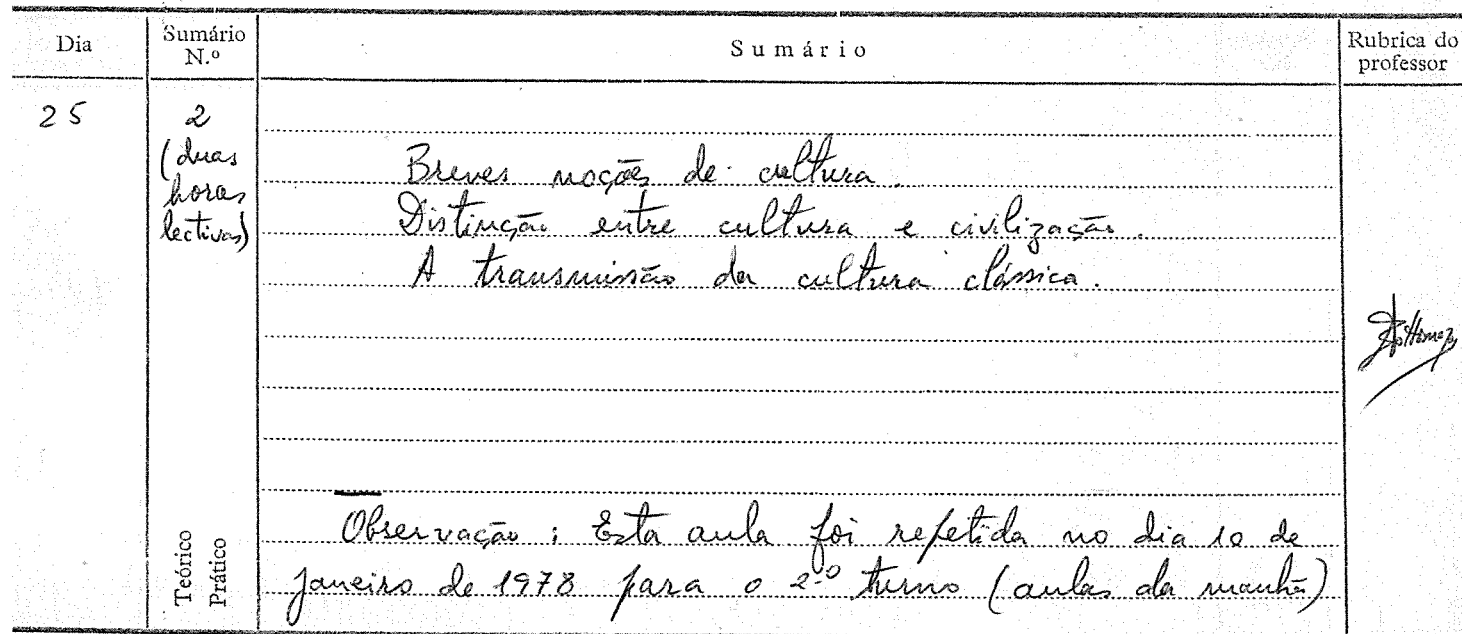 Dia
Sumário
N.º
Sumário
Rubrica do
professor
25
2
(duas
horas
lectivas)
Breves noções de cultura.
Distinção entre cultura e civilização.
A transmissão da cultura clássica.
Observação: Esta aula foi repetida no dia 10 de
janeiro de 1978 para o 2.º turno (aulas da manhã)
Teórico
Prático